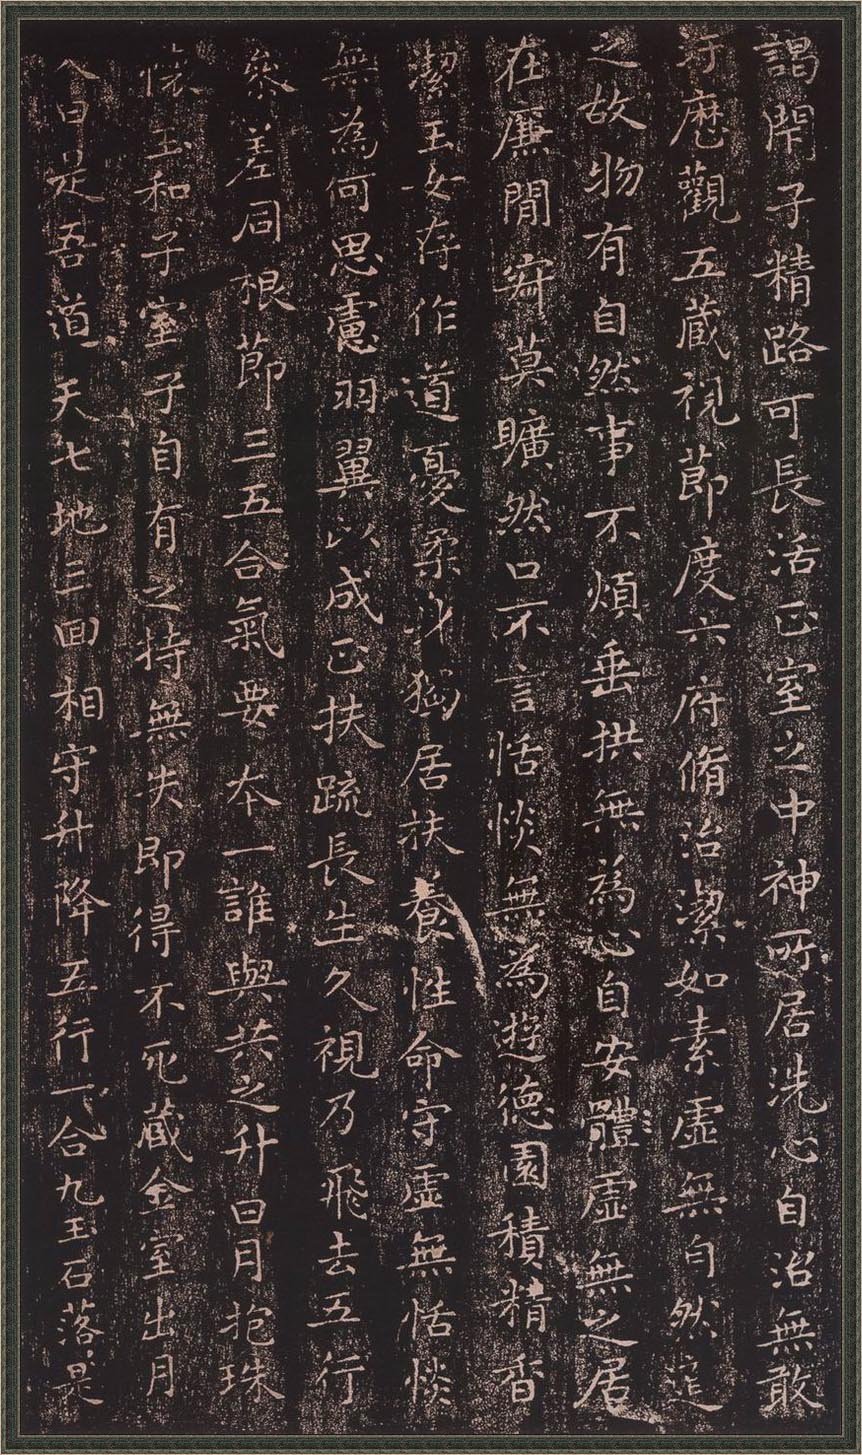 謁閇子精路可長活正室之中神所居洗心自治無敢
汙歷觀五藏視莭度六府脩治潔如素虛無自然道
之故物有自然事不煩垂拱無為心自安體虛無之居
在廉閒寂莫曠然口不言恬惔無為遊德園積精香
潔玉女存作道憂柔身獨居扶養性命守虛無恬惔
無為何思慮羽翼以成正扶疏長生久視乃飛去五行
參差同根莭三五合氣要夲一誰與共之升日月抱珠
懷玉和子室子自有之持無失即得不死藏金室出月
入日是吾道天七地三回相守升降五行一合九玉石落是